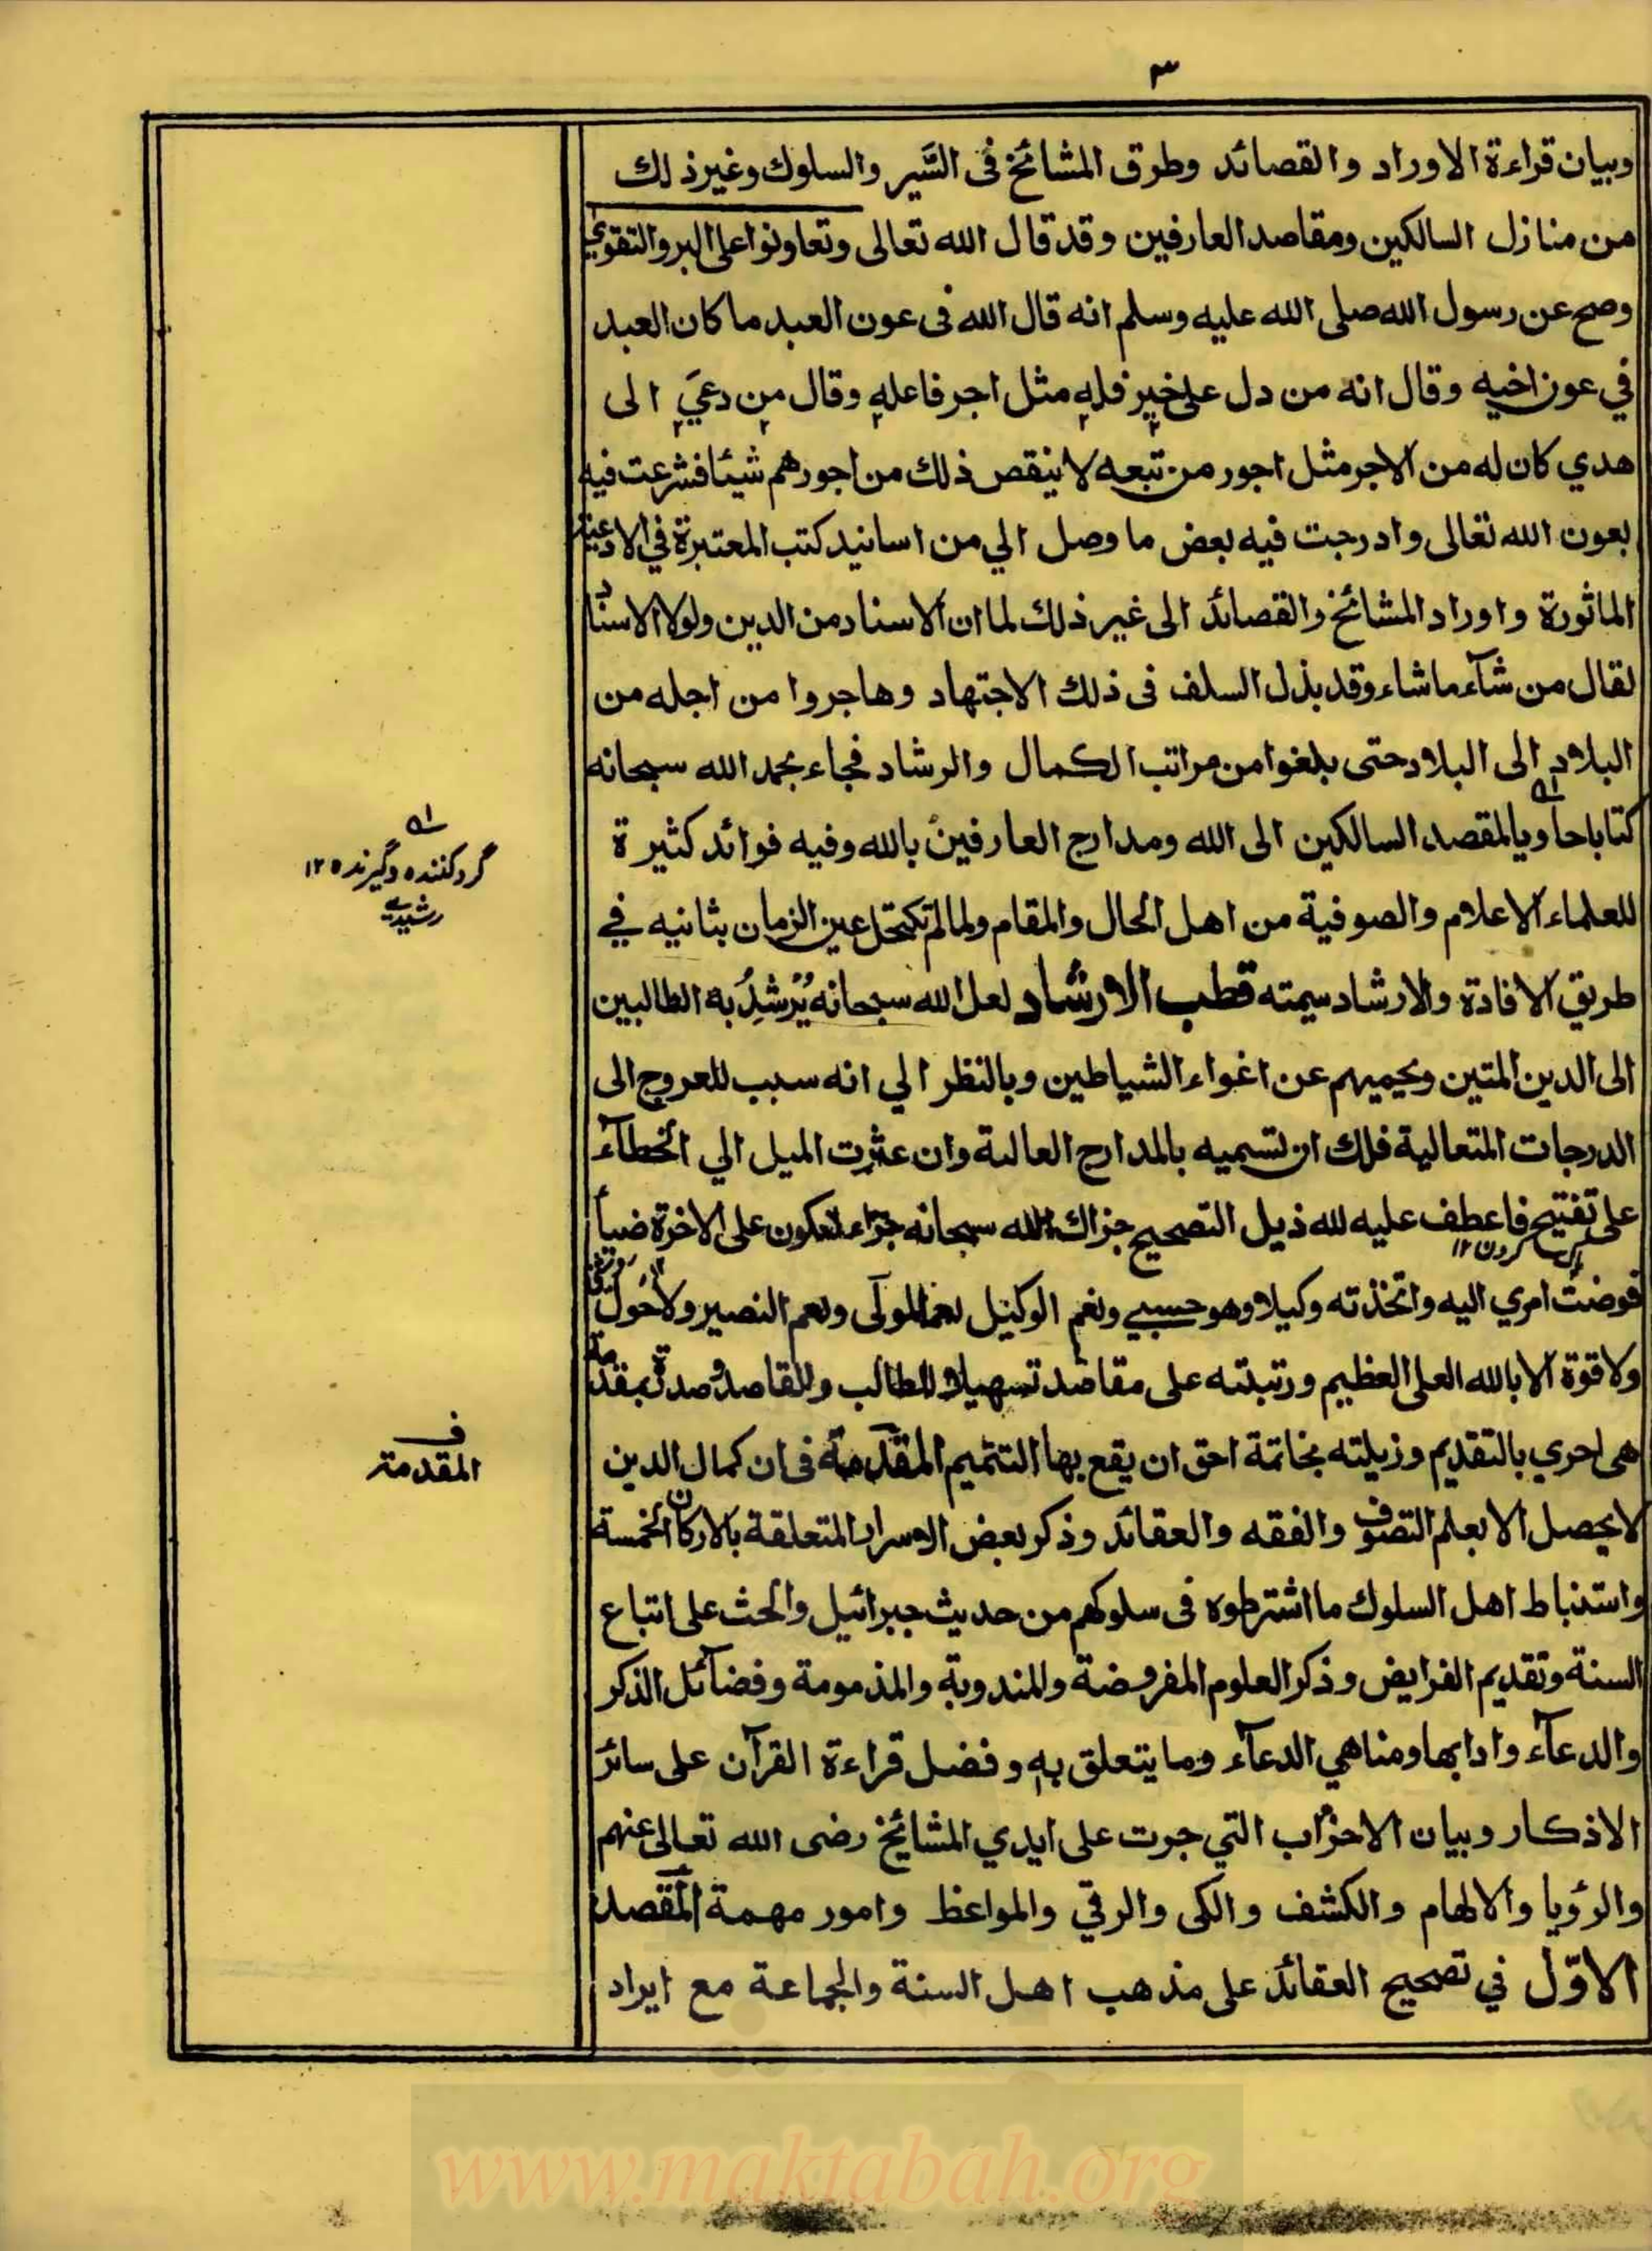 ٣
وبيان قراءة الاوراد والقصائد وطرق المشائخ فى السَّير والسلوك وغير ذلك
من منازل السالكين ومقاصد العارفين وقد قال الله تعالى وتعاونوا على البر والتقوي
وصح عن رسول الله صلى الله عليه وسلم انه قال الله فى عون العبد ما كان العبد
في عون اخيه وقال انه من دل على خير فله مثل اجر فاعله وقال من دعي الى
هدي كان له من الاجر مثل اجور من تبعه لا ينقص ذلك من اجورهم شيئا فشرعت فيه
بعون الله تعالى وادرجت فيه بعض ما وصل الي من اسانيد كتب المعتبرة في الادعية
الماثورة واوراد المشائخ والقصائد الى غير ذلك لما ان الاسناد من الدين ولولا الاسناد
لقال من شآء ما شاء وقد بذل السلف فى ذلك الاجتهاد وهاجروا من اجله من
البلاد الى البلاد حتى بلغوا من مراتب الكمال والرشاد فجاء بحمد الله سبحانه
كتابا حاويا لمقصد السالكين الى الله ومدارج العارفين بالله وفيه فوائد كثيرة
للعلماء الاعلام والصوفية من اهل الحال والمقام ولما لم تكتحل عين الزمان بثانيه في
طريق الافادة والارشاد سميته قطب الارشاد لعل الله سبحانه يُرْشِدُ به الطالبين
الى الدين المتين ويحميهم عن اغواء الشياطين وبالنظر الي انه سبب للعروج الى
الدرجات المتعالية فلك ان تسميه بالمدارج العالية وان عثرت الميل الي الخطآء
على تفتيح فاعطف عليه لله ذيل التصحيح جزاك الله سبحانه جزاء تكون على الاخرة ضيأ
كردن ١٢
فوضت امري اليه واتخذته وكيلا وهو حسبي ونعم الوكيل نعم المولى ونعم النصير ولا حول
ولا قوة الا بالله العلى العظيم ورتبته على مقاصد تسهيلا للطالب وللقاصد وصدرته بمقدمة
هى احري بالتقديم وزيلته بخاتمة احق ان يقع بها التتميم المقدمة فى ان كمال الدين
لا يحصل الا بعلم التصوف والفقه والعقائد وذكر بعض الاسرار المتعلقة بالاركان الخمسة
واستنباط اهل السلوك ما اشترطوه فى سلوكهم من حديث جبرائيل والحث على اتباع
السنة وتقديم الفرايض وذكر العلوم المفروضة والمندوبة والمذمومة وفضآئل الذكر
والدعآء وادابها ومناهي الدعآء وما يتعلق به وفضل قراءة القرآن على سائر
الاذكار وبيان الاحزاب التي جرت على ايدي المشائخ رضى الله تعالى عنهم
والرؤيا والالهام والكشف والكى والرقي والمواعظ وامور مهمة المقصد
الاوّل في تصحيح العقائد على مذهب اهل السنة والجماعة مع ايراد
گرد کننده و گیرنده ١٢
رشيدي
ف
المقدمة
www.maktabah.org